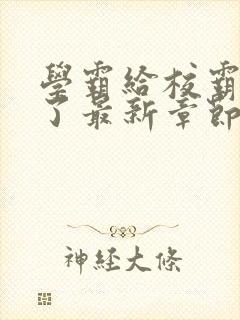 學霸給校霸
了最新章節
神經大條